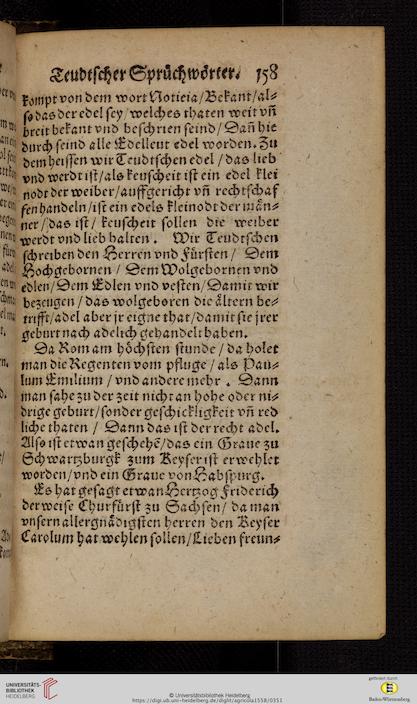 Teudtscher Sprüchwörter. 158
kompt von dem wort Noticia/Bekant/al-
so das der edel sey/welches thaten weit vn̄
breit bekant vnd beschrien seind/Dañ hie
durch seind alle Edelleut edel worden. Zu
dem heissen wir Teudtschen edel/das lieb
vnd werdt ist/als keuscheit ist ein edel klei
nodt der weiber/auffgericht vn̄ rechtschaf
fen handeln/ist ein edels kleinodt der män-
ner/das ist/keuscheit sollen die weiber
werdt vnd lieb halten. Wir Teudtschen
schreiben den Herren vnd Fürsten/ Dem
Hochgebornen/Dem Wolgebornen vnd
edlen/Dem Edlen vnd vesten/Damit wir
bezeugen/das wolgeboren die ältern be-
trifft/adel aber jr eigne that/damit sie jrer
geburt nach adelich gehandelt haben.
Da Rom am höchsten stunde/da holet
man die Regenten vom pfluge/als Pau-
lum Emilium/vnd andere mehr. Dann
man sahe zu der zeit nicht an hohe oder ni-
drige geburt/sonder geschickligkeit vn̄ red
liche thaten/ Dann das ist der recht adel.
Also ist etwan geschehē/das ein Graue zu
Schwartzburgk zum Keyser ist erwehlet
worden/vnd ein Graue von Habspurg.
Es hat gesagt etwan Hertzog Friderich
der weise Churfürst zu Sachsen/da man
vnsern allergnädigsten herren den Keyser
Carolum hat wehlen sollen/Lieben freun-
UNIVERSITÄTS-
BIBLIOTHEK
HEIDELBERG
© Universitätsbibliothek Heidelberg
https://digi.ub.uni-heidelberg.de/diglit/agricola1558/0351
gefördert durch
Baden-Württemberg